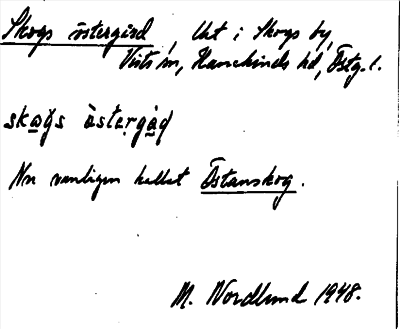 Skogs östergård, Uet i Skogs by,
Vists sn, Hanekinds hd, Östg. l.
skoǧs ö̀stergåd
Nu vanligen kallat Östanskog.
M. Nordlund 1948.